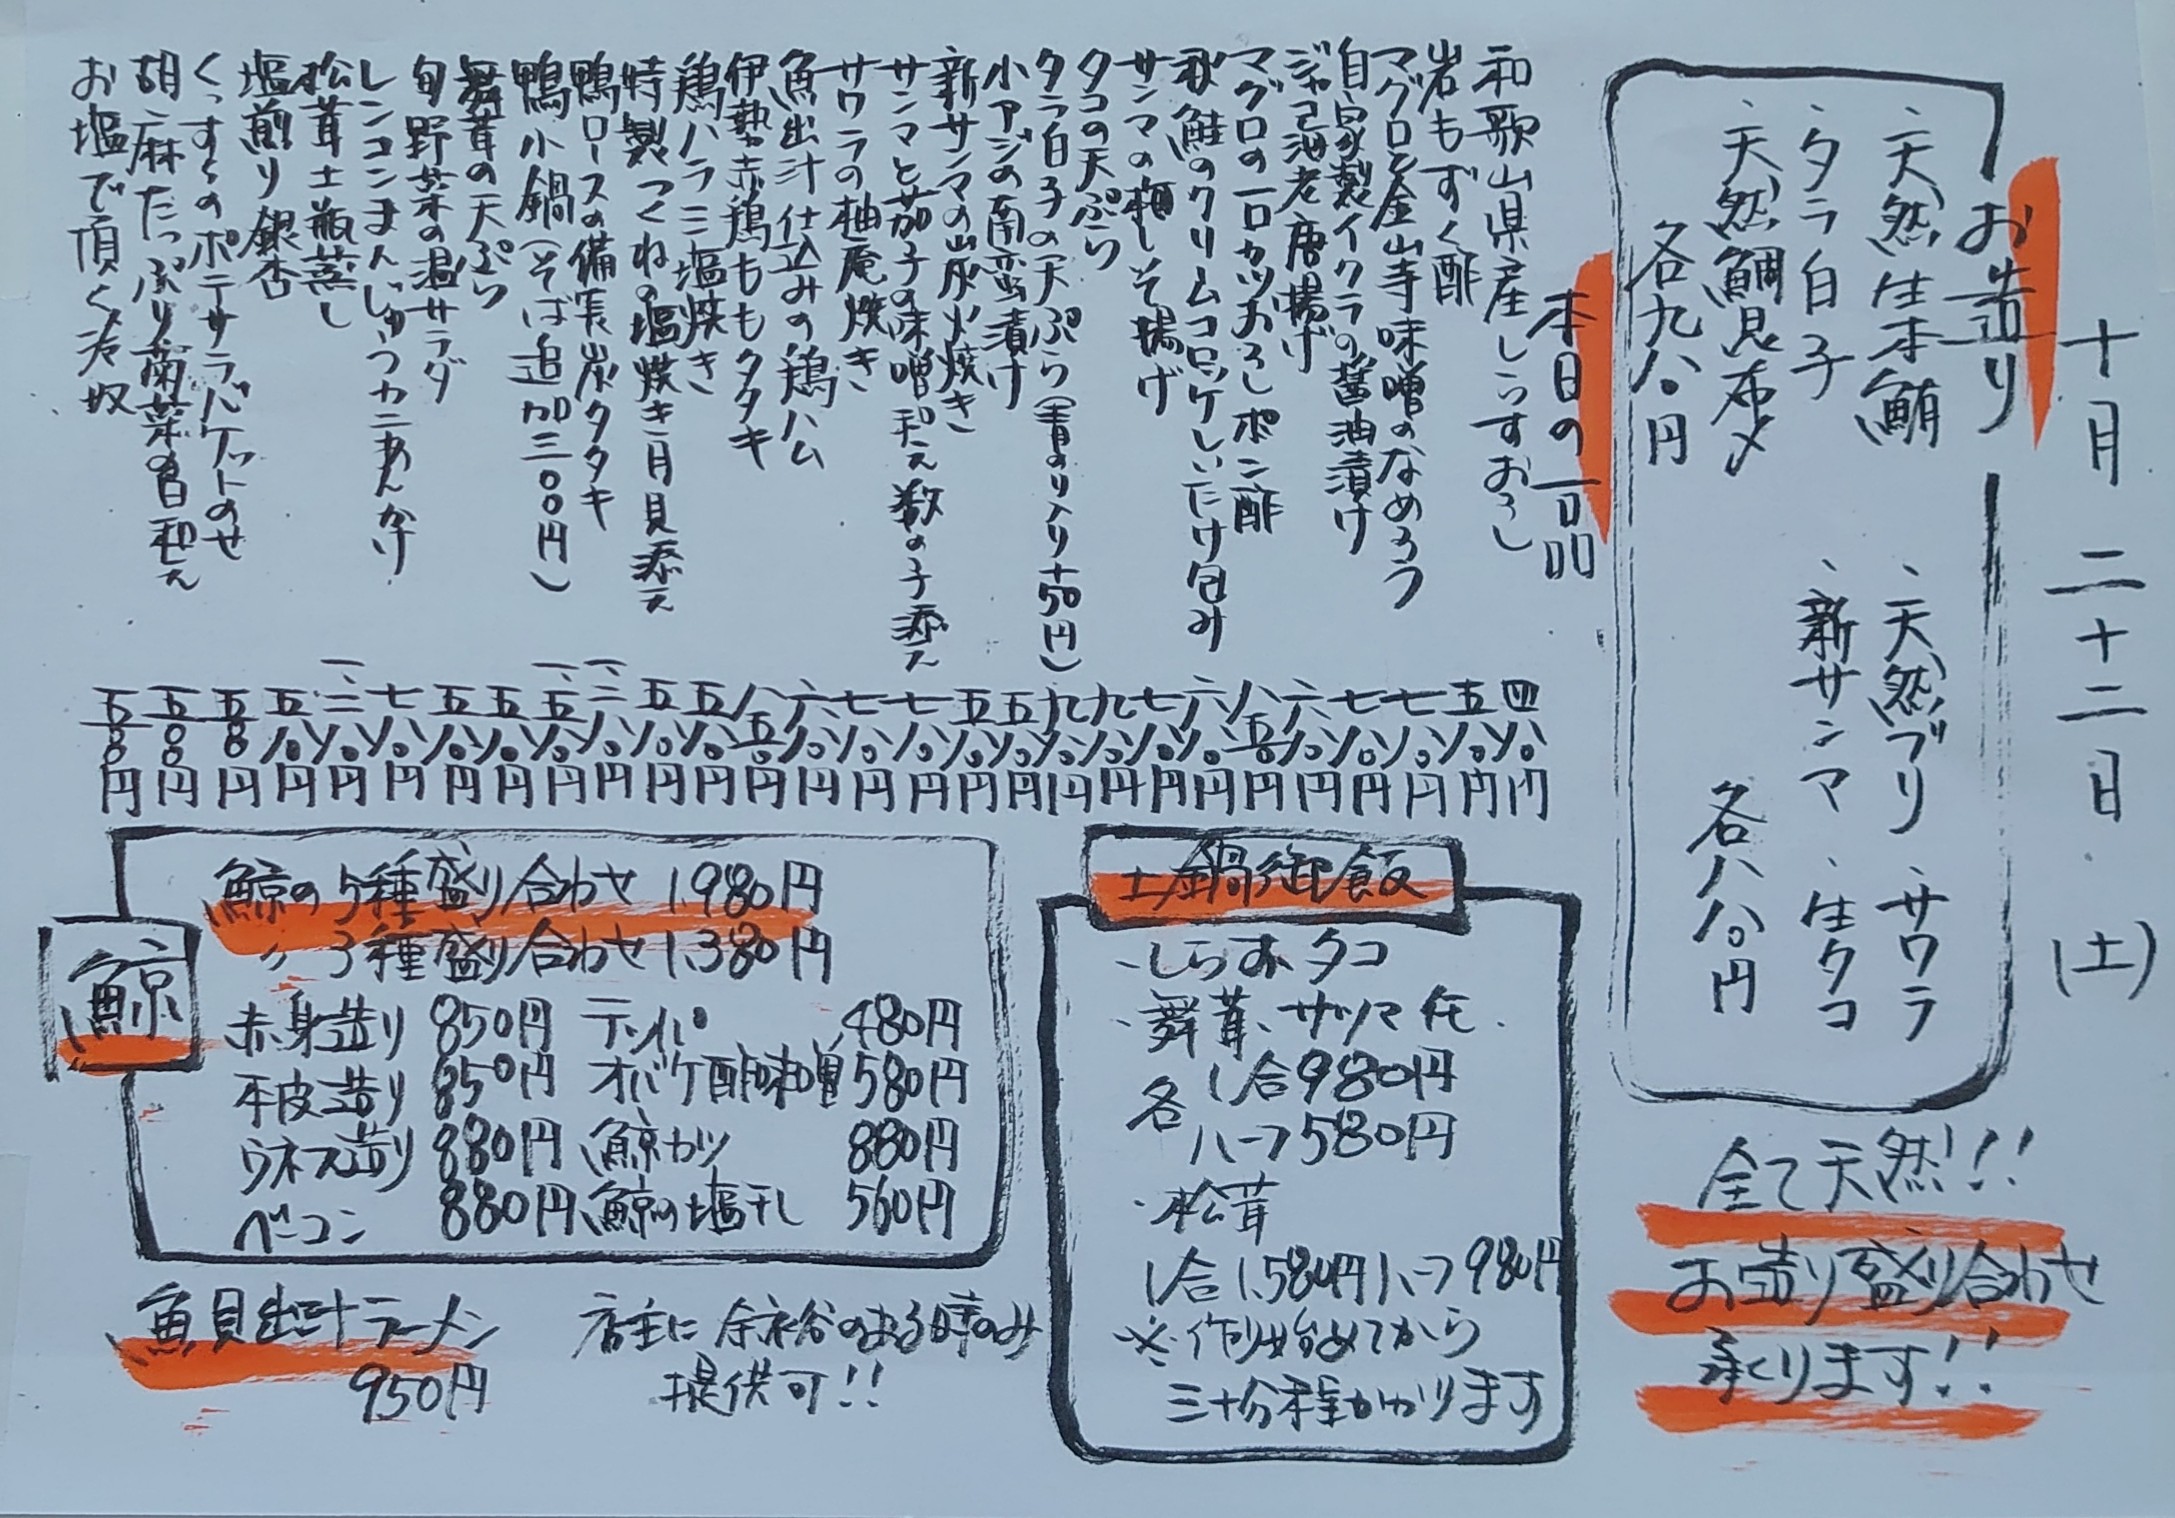 十月二十二日(土)
お造り
、天然生本鮪
、タラ白子
、天然鯛昆布〆
各九八〇円
、天然ブリ、サワラ
、新サンマ、生タコ
各八八〇円
全て天然!!
お造り盛り合わせ
承ります!!
本日の一品
和歌山県産しらすおろし 四八〇円
岩もずく酢 五八〇円
マグロと金山寺味噌のなめろう 七八〇円
自家製イクラの醤油漬け 七八〇円
ジャコ池老唐揚げ 六八〇円
マグロの一口カツおろしポン酢 八五〇円
秋鮭のクリームコロッケしいたけ包み 六八〇円
サンマの梅しそ揚げ 七八〇円
タコの天ぷら 九八〇円
タラ白子の天ぷら(青のり入り+50円) 九八〇円
小アジの南蛮漬け 五八〇円
新サンマの炭火焼き 五八〇円
サンマと茄子の味噌和え数の子添え 七八〇円
サワラの柚庵焼き 七八〇円
魚出汁仕込みの鶏ハム 六八〇円
伊勢赤鶏ももタタキ 八五〇円
鶏ハラミ塩焼き 五八〇円
特製つくねの塩焼き月見添え 五八〇円
鴨ロースの備長炭タタキ 一、二八〇円
鴨小鍋(そば追加三〇〇円) 一、五八〇円
舞茸の天ぷら 五八〇円
旬野菜の温サラダ 五八〇円
レンコンまんじゅうカニあんかけ 七八〇円
松茸土瓶蒸し 一、二八〇円
塩煎り銀杏 五八〇円
くっすんのポテサラバケットのせ 五五〇円
胡麻たっぷり菊菜の白和え 五〇〇円
お塩で頂く冷奴 五五〇円
土鍋御飯
・しらす、タコ
・舞茸、サツマ芋
各 1合980円
ハーフ580円
・松茸
1合1,580円ハーフ980円
※作り始めてから
三十分程かかります
鯨
鯨の5種盛り合わせ 1,980円
〃 3種盛り合わせ 1,380円
赤身造り 850円 テッパ 480円
本皮造り 850円 オバケ酢味噌 580円
ウネス造り 880円 鯨カツ 880円
ベーコン 880円 鯨の塩干し 560円
魚貝出汁ラーメン
950円
店主に余裕のある時のみ
提供可!!